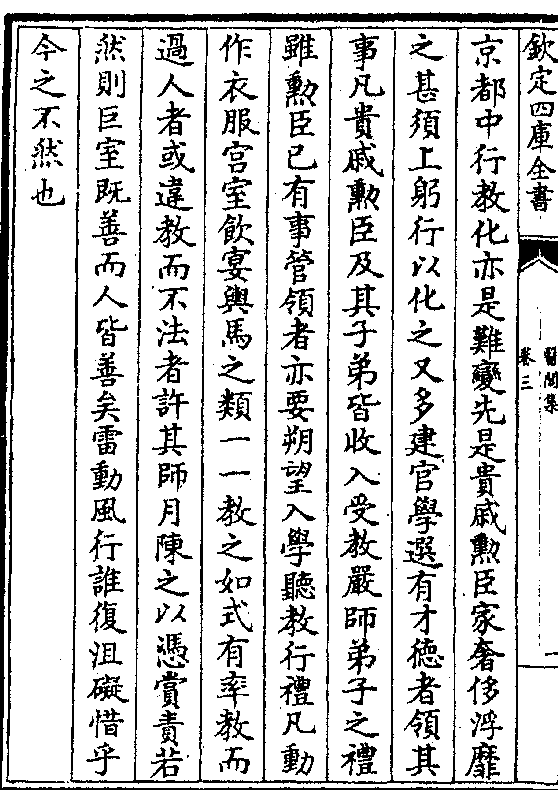 欽定四庫全書
醫閭集
卷三
京都中行教化亦是難變先是貴戚勲臣家奢侈浮靡
之甚須上躬行以化之又多建官學選有才徳者領其
事凡貴戚勲臣及其子弟皆收入受教嚴師弟子之禮
雖勲臣已有事管領者亦要朔望入學聽教行禮凡動
作衣服宫室飲宴輿馬之類一一教之如式有率教而
過人者或違教而不法者許其師月陳之以憑賞責若
然則巨室既善而人皆善矣雷動風行誰復沮礙惜乎
今之不然也